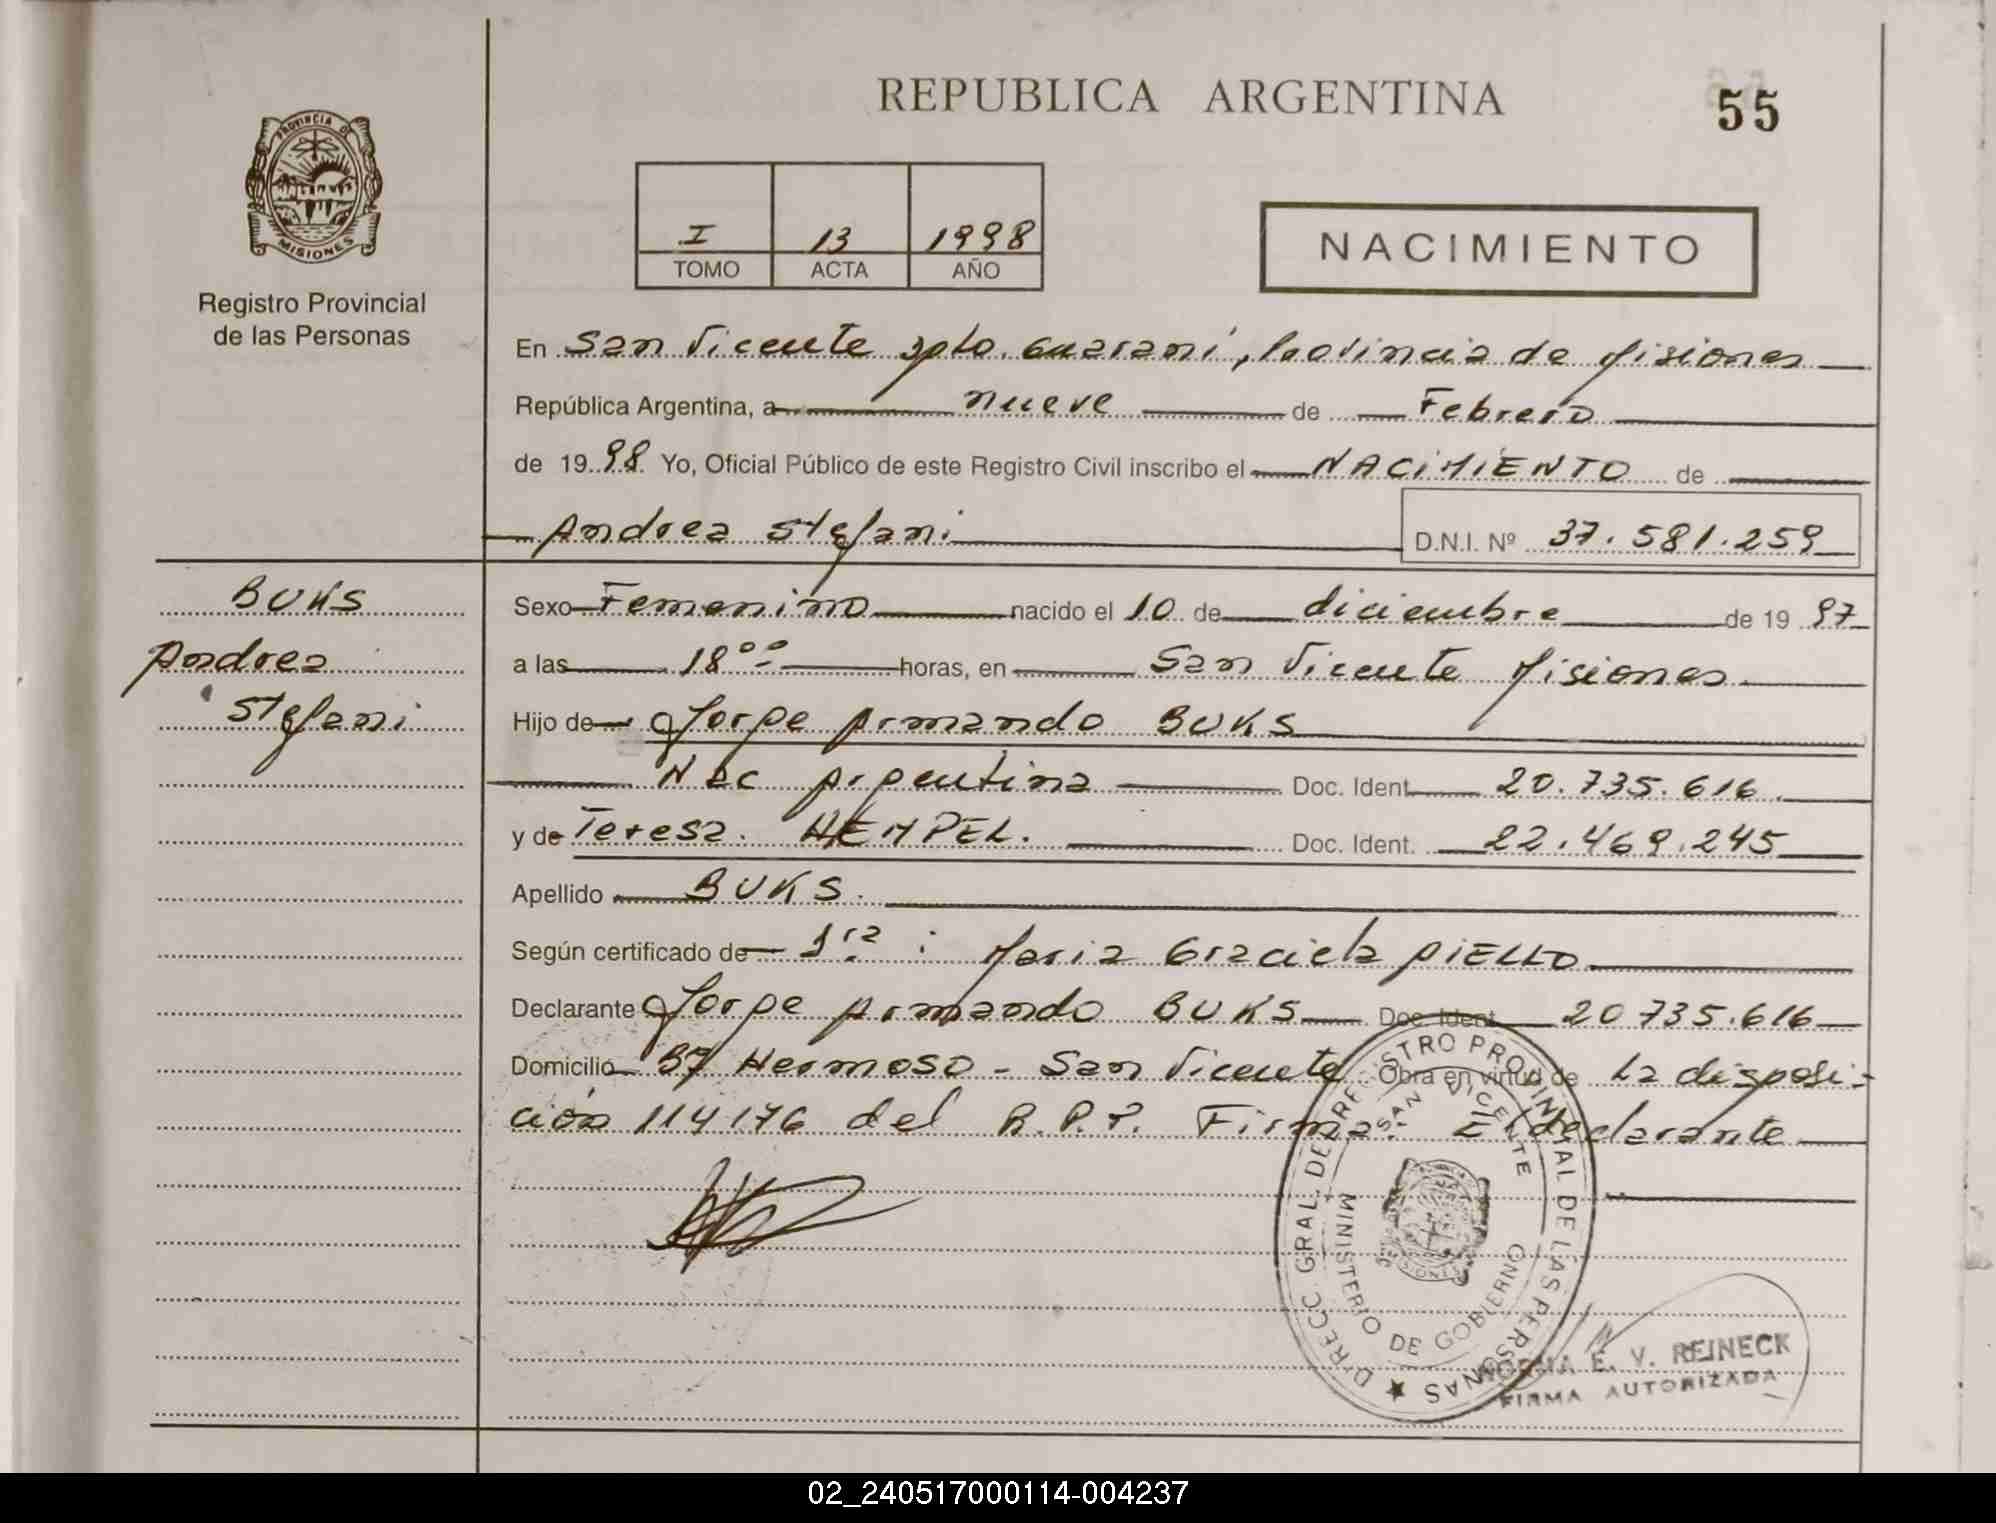 REPUBLICA ARGENTINA
55
PROVINCIA DE
MISIONES
Registro Provincial
de las Personas
I 13 1998
TOMO ACTA AÑO
NACIMIENTO
En San Vicente Dpto. Guaraní, Provincia de Misiones
República Argentina, a nueve de Febrero
de 1998 Yo, Oficial Público de este Registro Civil inscribo el NACIMIENTO de
Andrea Stefani
D.N.I. Nº 37.581.259
BUKS
Andrea
Stefani
Sexo Femenino nacido el 10 de diciembre de 1997
a las 18°° horas, en San Vicente Misiones
Hijo de Jorge Armando BUKS
Nac Argentina Doc. Ident. 20.735.616
y de Teresa. HEMPEL. Doc. Ident. 22.469.245
Apellido BUKS.
Según certificado de : Maria Graciela PIELLO
Declarante Jorge Armando BUKS Doc. Ident. 20735.616
Domicilio Hermoso - San Vicente Obra en virtud de la disposi-
ción 114176 del R.P.P. Firma: El declarante
DIRECC. GRAL. DE REGISTRO PROVINCIAL DE LAS PERSONAS
SAN VICENTE
MINISTERIO DE GOBIERNO
MISIONES
NORMA E. V. REINECK
FIRMA AUTORIZADA
02_240517000114-004237